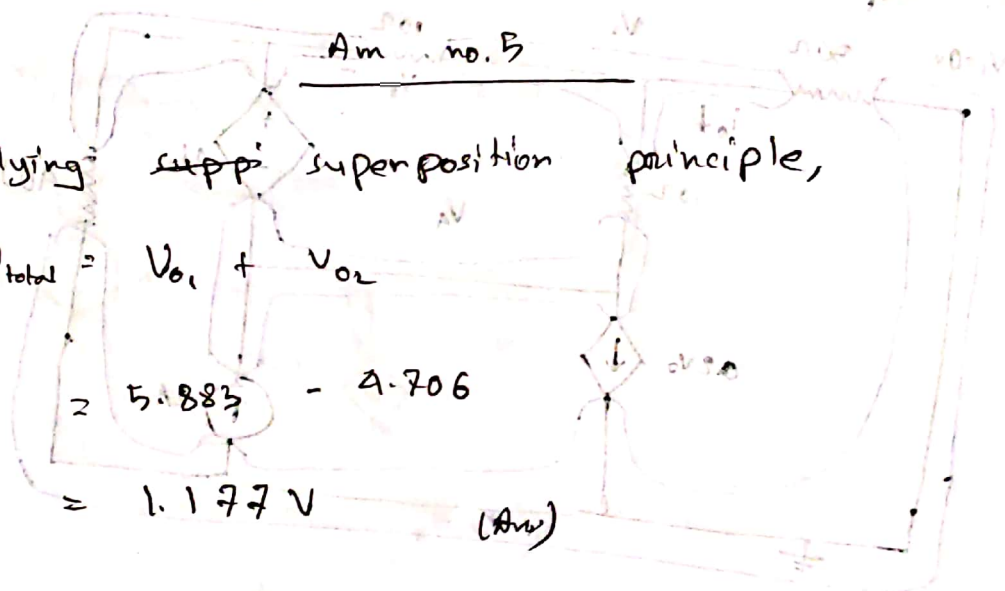 Am no. 5
lying supp superposition principle,
total = Vo₁ + Vo₂
= 5.883 - 4.706
= 1.177 V (Ans)